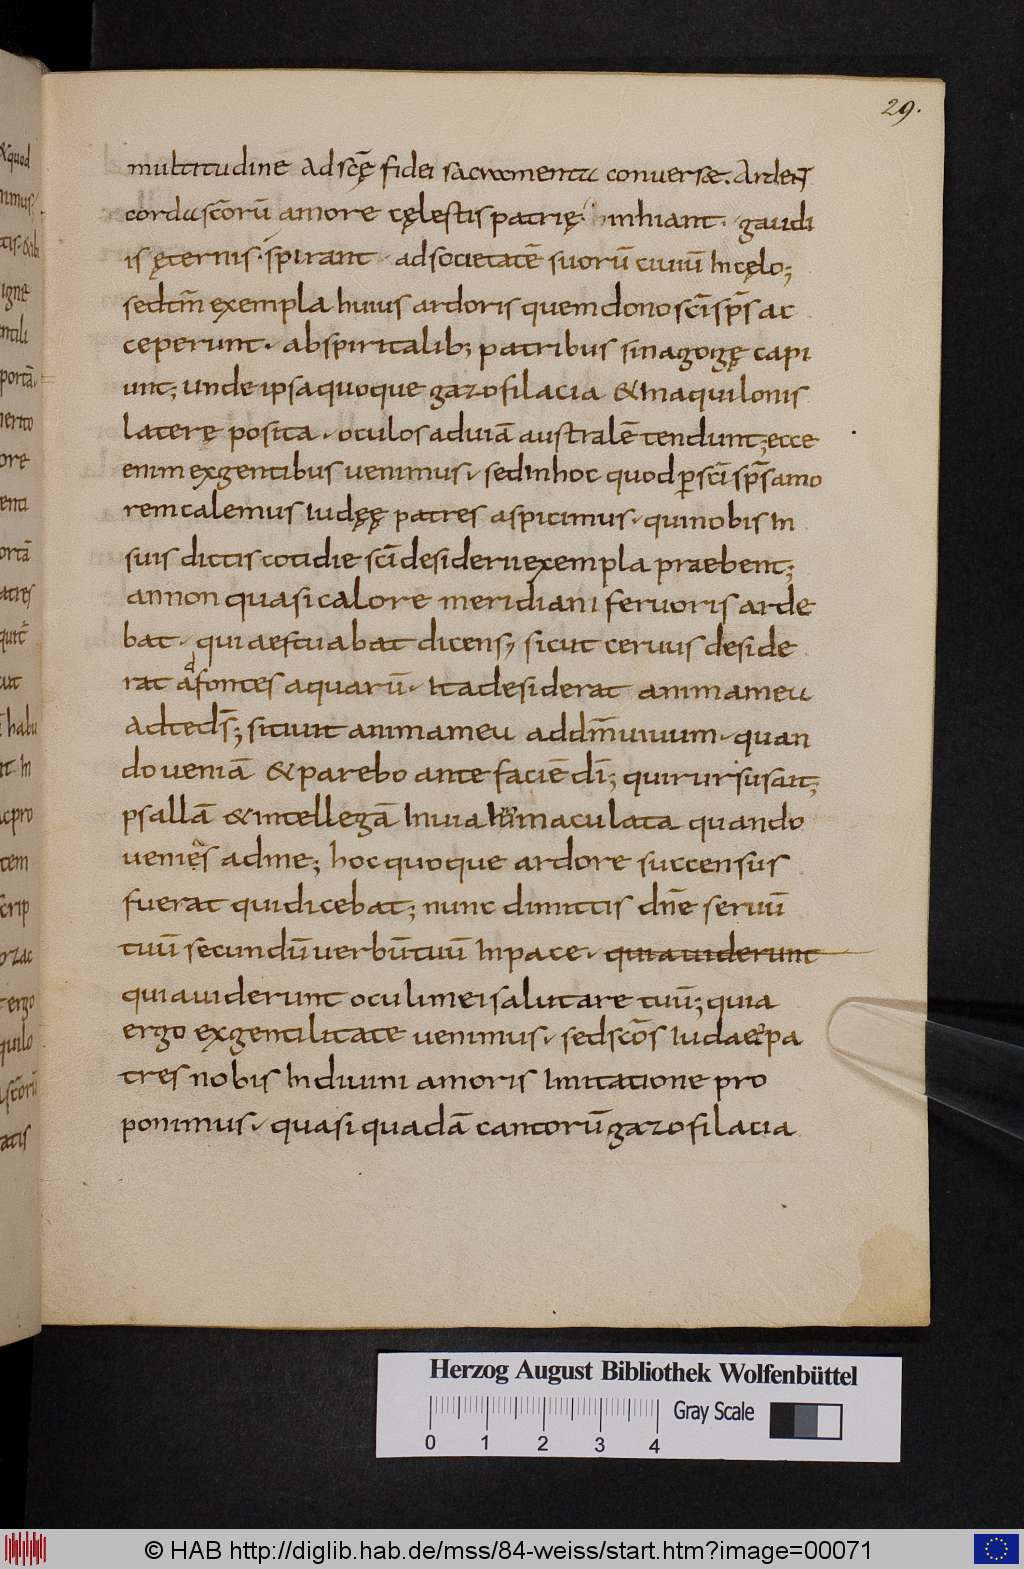 29.
multitudinē Ad scę̄ fidei sacramenta conuersæ. Ardent
corda scōrū amore cęlestis patrię inhiant · gaudi
is ęternis · spirant · ad societatē suorū ciuiū In cęlo;
sed tm̄ exempla huius ardoris quem dono scī sp̄s ac
ceperunt · ab spiritalib; patribus sinagogę capi
unt; unde ipsa quoque gazofilacia & In aquilonis
laterę posita · oculos ad uiā australē tendunt; ecce
enim ex gentibus uenimus · sed In hoc quod per scī sp̄s amo
rem calemus Iudęę patres aspicimus · qui nobis In
suis dictis cotidie scī desiderii exempla praebent;
an non quasi calore meridiani feruoris arde
bat · qui aestuabat dicens; sicut ceruus deside
rat ad fontes aquarū · Ita desiderat anima mea
Ad te dś; sitiuit anima mea ad dm̄ uiuum · quan
do ueniā & parebo ante faciē dī; qui rursus ait;
psallā & intellegā In uia Inmaculata quando
uenies ad me; hoc quoque ardore succensus
fuerat qui dicebat; nunc dimittis dn̄e seruū
tuū secundū uerbū tuū In pace · quia uiderunt
quia uiderunt oculi mei salutare tuū; quia
ergo ex gentilitate uenimus · sed scōs Iudaeę pa
tres nobis In diuini amoris Imitatione pro
ponimus · quasi quadā cantorū gazofilacia
Herzog August Bibliothek Wolfenbüttel
Gray Scale
0 1 2 3 4
© HAB http://diglib.hab.de/mss/84-weiss/start.htm?image=00071